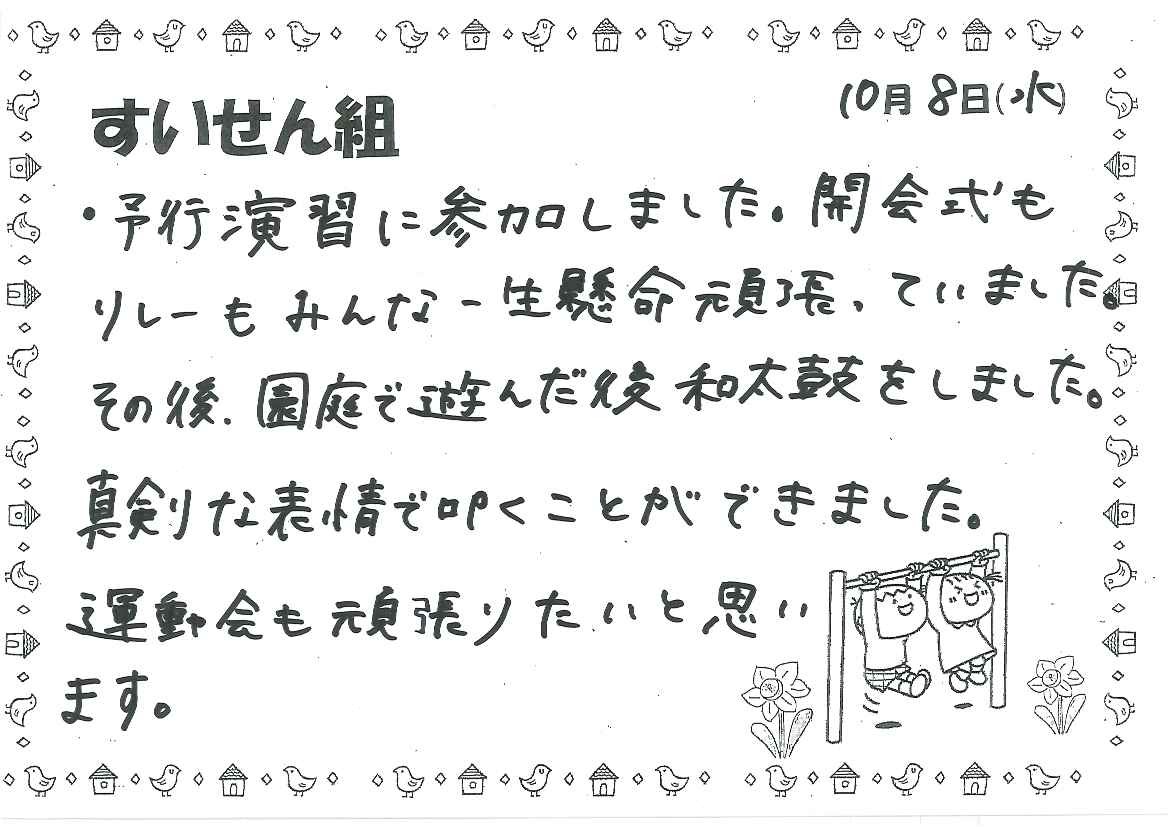 10月8日(水)
すいせん組
・予行演習に参加しました。開会式も
リレーもみんな一生懸命頑張っていました。
その後、園庭で遊んだ後和太鼓をしました。
真剣な表情で叩くことができました。
運動会も頑張りたいと思い
ます。